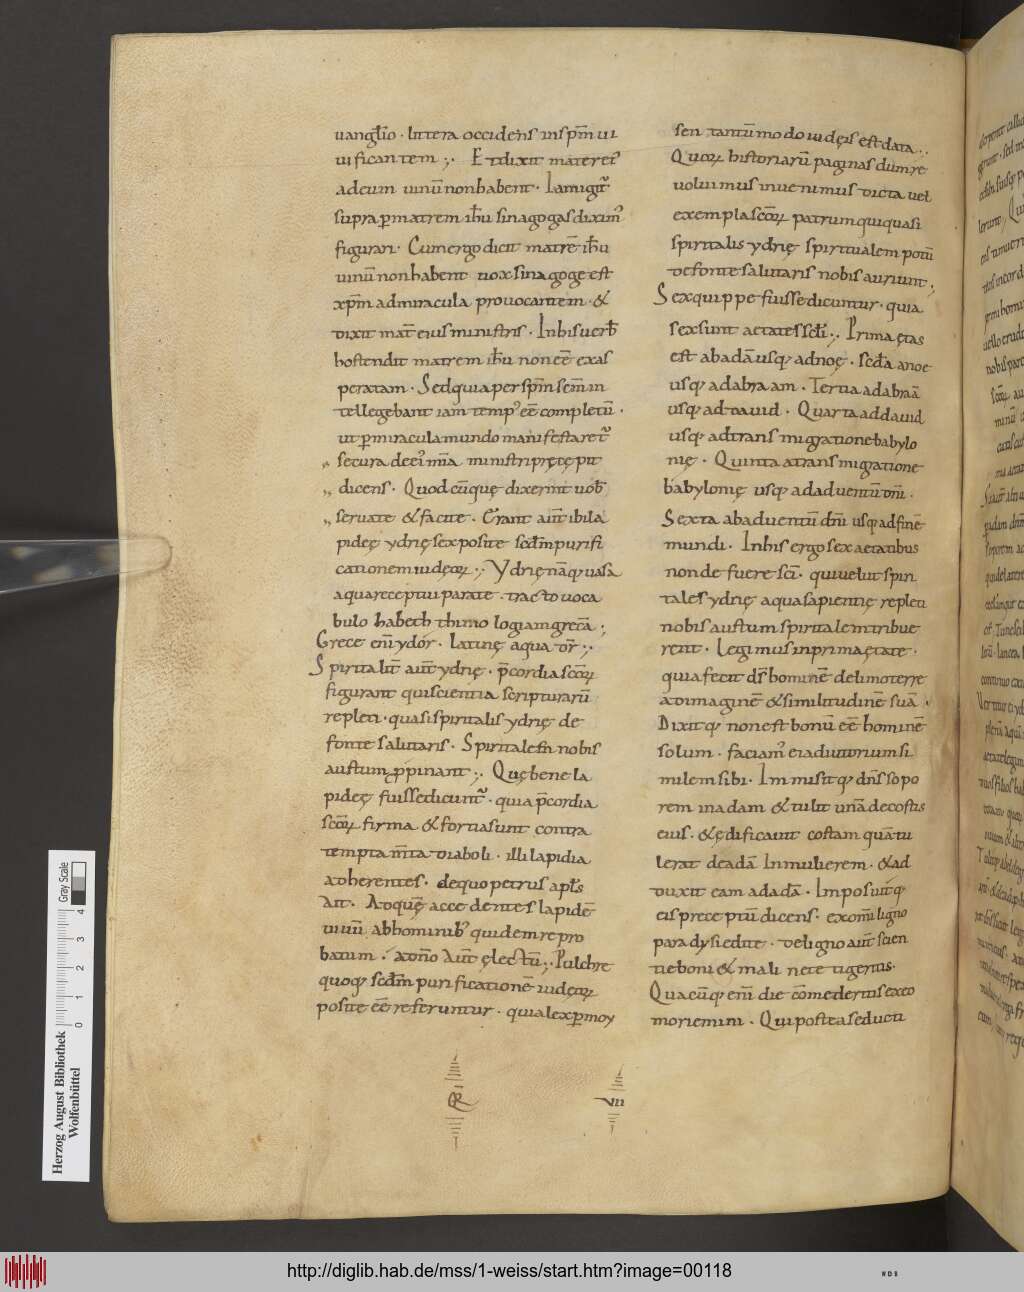 uangl̄io · littera occidens inspm̄ ui
uificantem ;· Et dixit mater ei᾽
ad eum uinū non habent · Iam igit᷑
supra ꝑ matrem ih̄u sinagogas dixim᾽
figurari · Cum ergo dicit matrē ih̄u
uinū non habent uox sinagoge est
xpm̄ ad miracula prouocantem · &
dixit mat̄ eius ministris · In his uerb̄
hostendit matrem ih̄u non eē ex as
peratam · Sed quia per spm̄ sem̄ in
tellegebant iam temp᾽ eē completū ·
ut ꝑ miracula mundo manifestaret᷑
secura de ei᾽ ministri pręcępit
dicens · Quodcūquę dixerint uob̄
seruate & facite · Erant aūt ibi la
pideę ydrię sex posite scd̄m purifi
cationem iudęoꝝ ;· Ydrię nāqꝫ uasa
aqua receptui parate · tracto uoca
bulo habeth thimologiam grecā ;
Grece eni᷑ ydor · latinę aqua dr̄ ;·
Spiritalit̄ aūt ydrię · p̄cordia scōꝝ
figurant qui scientia scripturarū
repleti · quasi spiritalis ydrię de
fonte salutaris · Spiritalem nobis
austum ꝓpinant ;· Quę bene la
pideę fuisse dicunt᷑ · quia p̄cordia
scōꝝ firma & fortia sunt contra
temptam̄ta diaboli · illi lapidi a
adherentes · de quo petrus apl̄s
Ait · Ad quē accedentes lapidē
uiuū ab hominib᾽ quidem repro
batum · A dn̄o aūt ęlectū ;· Pulchre
quoqꝫ scd̄m purificationē iudęoꝝ
posite eē referuntur · quia lex ꝑ moy
sen tantūmodo iudęis est data ·.
Quoꝝ historiarū paginas dum re
uoluimus inuenimus dicta uel
exempla scōꝝ patrum qui quasi
spiritalis ydrię spiritualem potū
de fonte salutaris nobis auriunt ;
Sex quippe fuisse dicuntur · quia
sex sunt aetates scl̄i ;· Prima ętas
est ab adā usqꝫ ad noę · scd̄a a noe
usqꝫ ad abraam · Tertia ad abraā
usqꝫ ad dauid · Quarta ad dauid
usqꝫ ad transmigratione babylo
nię · Quinta a transmigratione
babylonię usqꝫ ad aduentū dn̄i ·
Sexta ab aduentū dn̄i usqꝫ ad finē
mundi · In his ergo sex aetatibus
non defuere sci᷑ · qui uelut spiri
tales ydrię aqua sapientię repleti
nobis austum spiritalem tribue
rent · Legimus in prima ętate ·
quia fecit ds᷑ hominē de limo terre
ad imaginē & similitudinē suā ·
Dixitqꝫ non est bonū eē hominē
solum · faciam᾽ ei adiutorium si
milem sibi · Immisitqꝫ dn̄s sopo
rem in adam & tulit unā de costis
eius · & ędificauit costam quā tu
lerat de adā In mulierem · & ad
duxit eam ad adā · Imposuitqꝫ
eis preceptū dicens · ex om̄i ligno
paradysi edite · de ligno aūt scien
tie boni & mali ne tetigeritis ·
Quacūqꝫ eni᷑ die cōmederitis ex eo
moriemini · Qui postea seducti
QR
VIII
Herzog August Bibliothek
Wolfenbüttel
Gray Scale
0 1 2 3 4
http://diglib.hab.de/mss/1-weiss/start.htm?image=00118